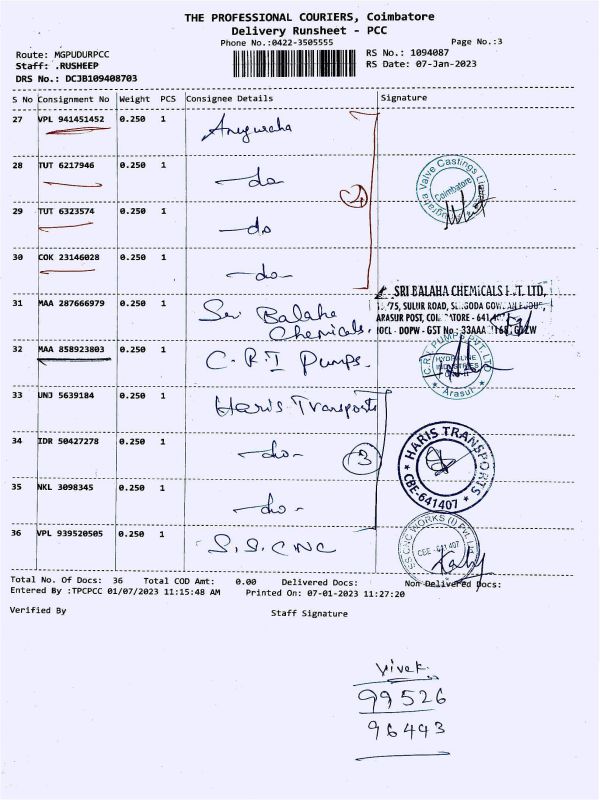 THE PROFESSIONAL COURIERS, Coimbatore
Delivery Runsheet - PCC
Phone No.:0422-3505555
Page No.:3
Route: MGPUDURPCC
RS No.: 1094087
Staff: .RUSHEEP
RS Date: 07-Jan-2023
DRS No.: DCJB109408703
S No Consignment No Weight PCS Consignee Details Signature
27 VPL 941451452 0.250 1 Anugraha
28 TUT 6217946 0.250 1 -do
29 TUT 6323574 0.250 1 -do
30 COK 23146028 0.250 1 -do-
31 MAA 287666979 0.250 1 Sri Balaha
Chemicals.
32 MAA 858923803 0.250 1 C.R.I Pumps.
33 UNJ 5639184 0.250 1 Haris Transports
34 IDR 50427278 0.250 1 -do-
3
35 NKL 3098345 0.250 1 -do-
36 VPL 939520505 0.250 1 S.S.CNC
Valve Castings
Coimbatore
SRI BALAHA CHEMICALS LTD,
75, SULUR ROAD,
ARASUR POST,
DOPW - GST No : 33AAA
C.R.I PUMPS PVT. LTD
HYDROLINE
INDUSTRIES
Arasur
HARIS TRANSPORTS
CBE-641407
CNC WORKS (I) Pvt. Ltd
CBE - 641 407
Total No. Of Docs: 36 Total COD Amt: 0.00 Delivered Docs: Non Delivered Docs:
Entered By :TPCPCC 01/07/2023 11:15:48 AM Printed On: 07-01-2023 11:27:20
Verified By Staff Signature
Vivek.
99526
96493